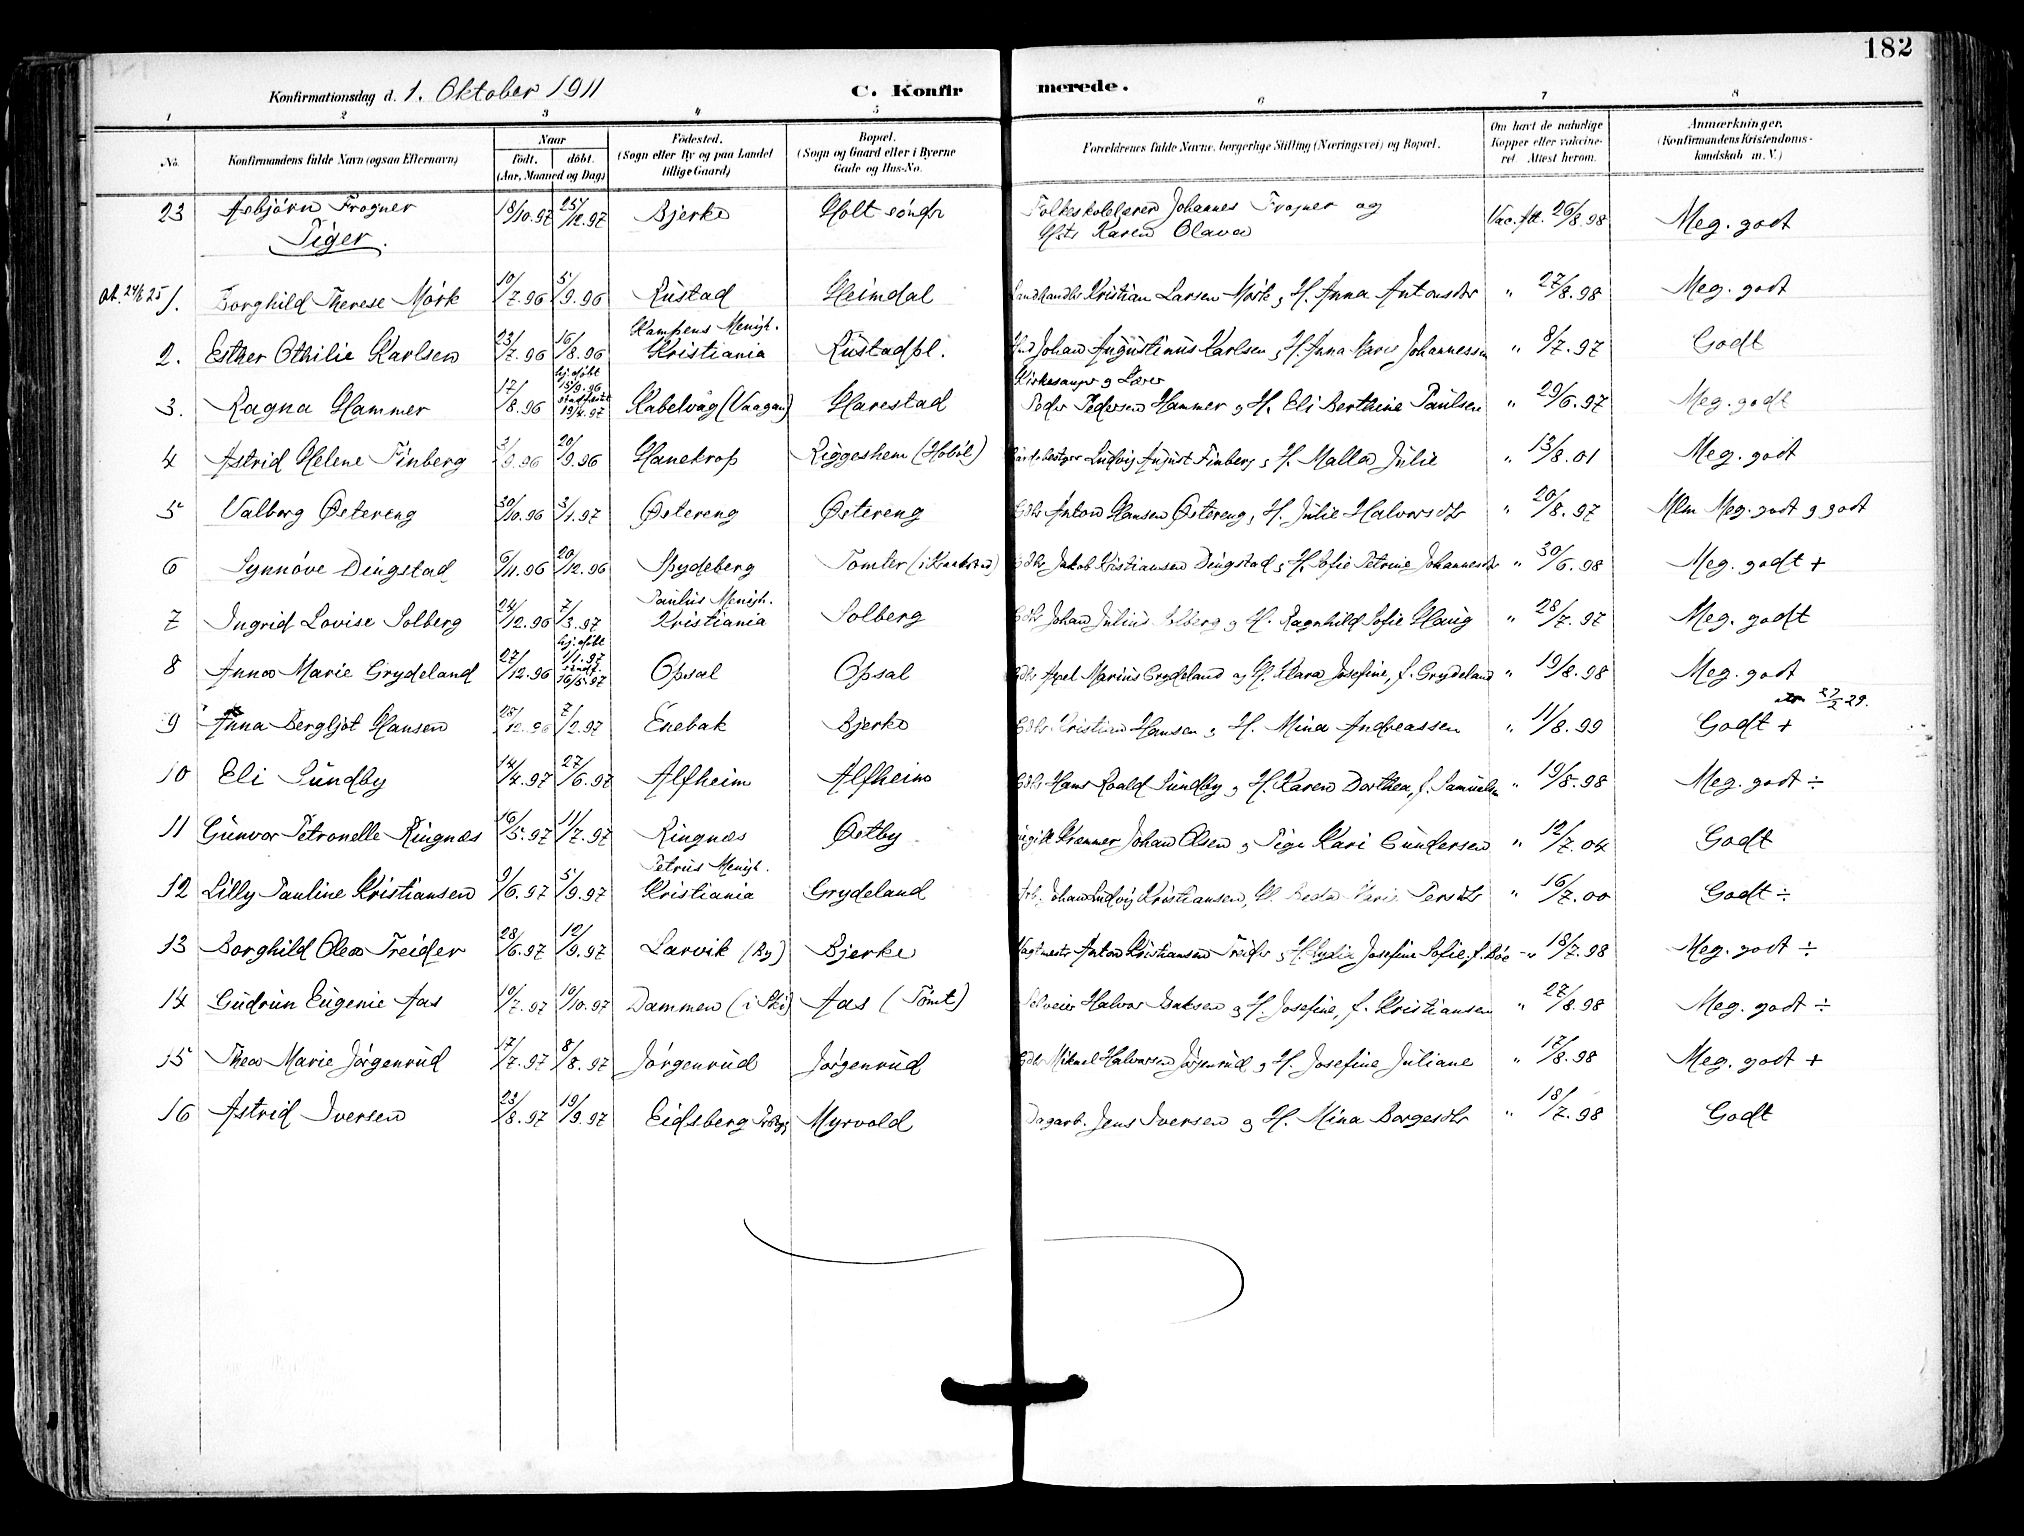 182
Konfirmationsdag d. 1. Oktober 1911 C. Konfirmerede.
1 2 3 4 5 6 7 8
No. Konfirmandens fulde Navn (ogsaa Efternavn) Naar født. døbt. (Aar, Maaned og Dag) Fødested. (Sogn eller By og paa Landet tillige Gaard) Bopæl. (Sogn og Gaard eller i Byerne Gade og Hus-No. Forældrenes fulde Navne, borgerlige Stilling (Næringsvei) og Bopæl. Om havt de naturlige Kopper eller vaccineret Attest herom. Anmærkninger. (Konfirmandens Kristendomskundskab m. V.)
23 Asbjørn Frogner 18/10.97 25/12.97 Bjerke Holt søndr Folkeskolelærer Johannes Frogner og Hstr Karen Olava Vac. Att. 26/8.98 Meg. godt
Piger.
1. Borghild Therese Mørk 10/7.96 5/9.96 Rustad Heimdal Landhandler Kristian Larsen Mørk, H. Anna Antonsdtr " 27/8.98 Meg. godt
2. Esther Othilie Karlsen 23/7.96 16/8.96 Kampens Menigh. Kristiania Rustadpl. Johan Augustinus Karlsen, H. Anna Johannessen " 8/7.97 Godt
3. Ragna Hammer 17/8.96 hj.døbt 15/9.96 stadfæstet 19/4.97 Kabelvåg (Vaagan) Harestad Kirkesanger og Lærer Peder Pedersen Hammer og H. Eli Berthine Paulsen " 29/6.97 Meg. godt
4 Astrid Helene Finberg 3/9.96 20/9.96 Hanekrop Riggeshem (Hobøl) Ludvig August Finberg, H. Malla Julie " 13/8.01 Meg. godt
5 Valborg Østereng 30/10.96 3/1.97 Østereng Østereng Gdbr Anton Hansen Østereng, H. Julie Halvorsdtr " 20/8.97 Mlm Meg. godt og godt
6 Synnøve Dingstad 6/11.96 20/12.96 Spydeberg Tomter (i Kraakstad) Gdbr Jakob Kristiansen Dingstad, H. Sofie Petrine Johannesdtr " 30/6.98 Meg. godt +
7 Ingrid Lovise Solberg 24/12.96 7/3.97 Paulus Menigh. Kristiania Solberg Gdbr Johan Julius Solberg og H. Ragnhild Sofie Haug " 28/7.97 Meg. godt
8 Anna Marie Grydeland 27/12.96 hj.døbt 1/1.97 stadf. 16/5.97 Opsal Opsal Gdbr Axel Marius Grydeland og H. Klara Josefine, f. Grydeland " 19/8.98 Meg. godt
9 Anna Bergljot Hansen 28/12.96 7/2.97 Enebak Bjerke Gdbr. Kristian Hansen, H. Mina Andreassen " 11/8.99 Godt +
10 Eli Sundby 14/4.97 27/6.97 Alfheim Alfheim Gdbr Hans Roald Sundby, H. Karen Dorthea, f. Samuelsen " 19/8.98 Meg. godt ÷
11 Gunvor Petronelle Ringnæs 16/5.97 11/7.97 Ringnæs Østby Ugift Kræmmer Johan Olsen og Pige Kari Gundersen " 12/7.04 Godt
12 Lilly Pauline Kristiansen 9/6.97 5/9.97 Petrus Menigh. Kristiania Grydeland Arb. Johan Ludvig Kristiansen, H. Persdtr " 16/7.00 Godt ÷
13 Borghild Olea Treider 28/6.97 12/9.97 Larvik (By) Bjerke Vagtmester Anton Kristiansen Treider, H. Lydia Josefine Sofie, f. Bøe " 18/7.98 Meg. godt ÷
14 Gudrun Eugenie Aas 10/7.97 10/10.97 Dammen (i Ski) Aas (Tomt) Selveier Halvor Isaksen og H. Josefine, f. Kristiansen " 27/8.98 Meg. godt ÷
15 Thea Marie Jørgenrud 17/7.97 8/8.97 Jørgenrud Jørgenrud Gdbr Mikael Halvorsen Jørgenrud, H. Josefine Juliane " 17/8.98 Meg. godt +
16 Astrid Iversen 23/8.97 19/9.97 Eidsberg Myrvold Dagarb. Jens Iversen og H. Mina Borgesdtr " 18/7.98 Godt